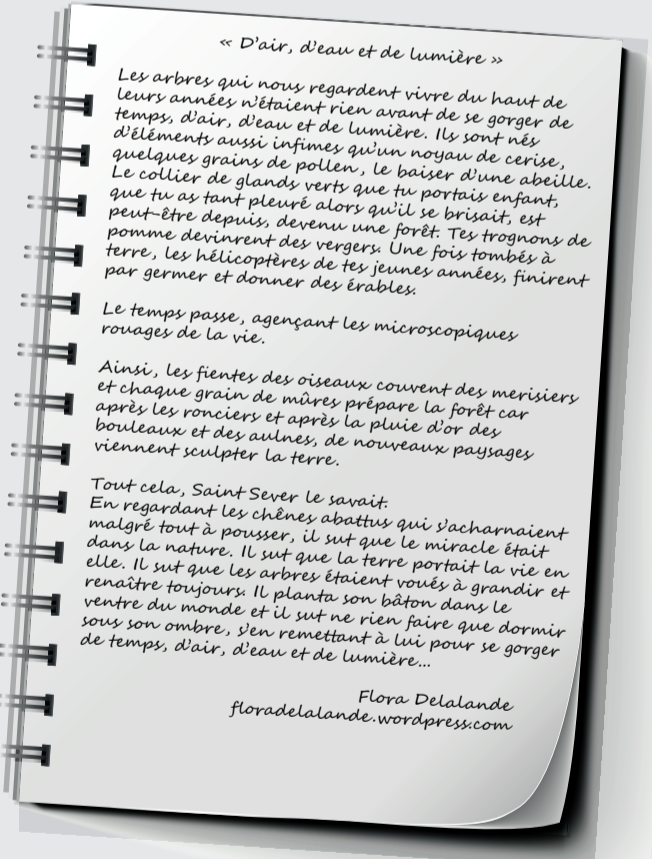 « D'air, d'eau et de lumière »
Les arbres qui nous regardent vivre du haut de
leurs années n'étaient rien avant de se gorger de
temps, d'air, d'eau et de lumière. Ils sont nés
d'éléments aussi infimes qu'un noyau de cerise,
quelques grains de pollen, le baiser d'une abeille.
Le collier de glands verts que tu portais enfant,
que tu as tant pleuré alors qu'il se brisait, est
peut-être depuis, devenu une forêt. Tes trognons de
pomme devinrent des vergers. Une fois tombés à
terre, les hélicoptères de tes jeunes années, finirent
par germer et donner des érables.
Le temps passe, agençant les microscopiques
rouages de la vie.
Ainsi, les fientes des oiseaux couvent des merisiers
et chaque grain de mûres prépare la forêt car
après les ronciers et après la pluie d'or des
bouleaux et des aulnes, de nouveaux paysages
viennent sculpter la terre.
Tout cela, Saint Sever le savait.
En regardant les chênes abattus qui s'acharnaient
malgré tout à pousser, il sut que le miracle était
dans la nature. Il sut que la terre portait la vie en
elle. Il sut que les arbres étaient voués à grandir et
renaître toujours. Il planta son bâton dans le
ventre du monde et il sut ne rien faire que dormir
sous son ombre, s'en remettant à lui pour se gorger
de temps, d'air, d'eau et de lumière...
Flora Delalande
floradelalande.wordpress.com